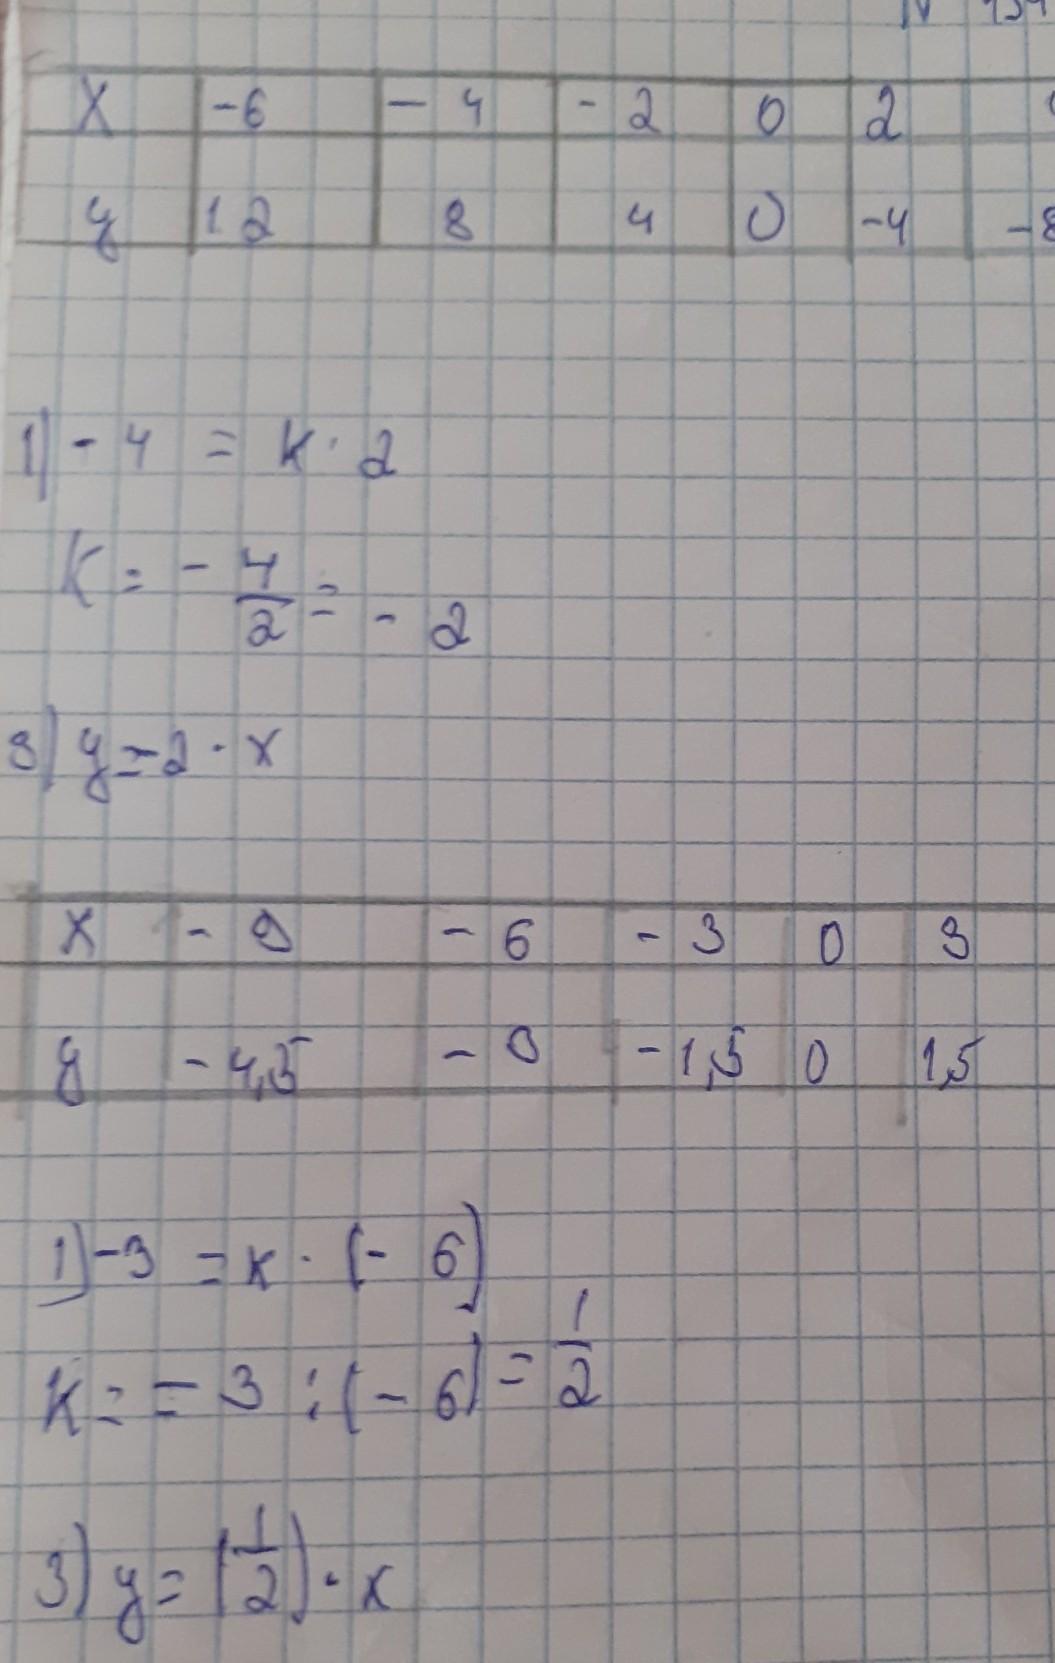 X -6 -4 -2 0 2
y 12 8 4 0 -4 -8
1) -4 = k · 2
K = - 4/2 = - 2
3) y = -2 · x
X -9 -6 -3 0 3
y -4,5 -3 -1,5 0 1,5
1) -3 = k · (- 6)
K = = 3 : (- 6) = 1/2
3) y = (1/2) · x